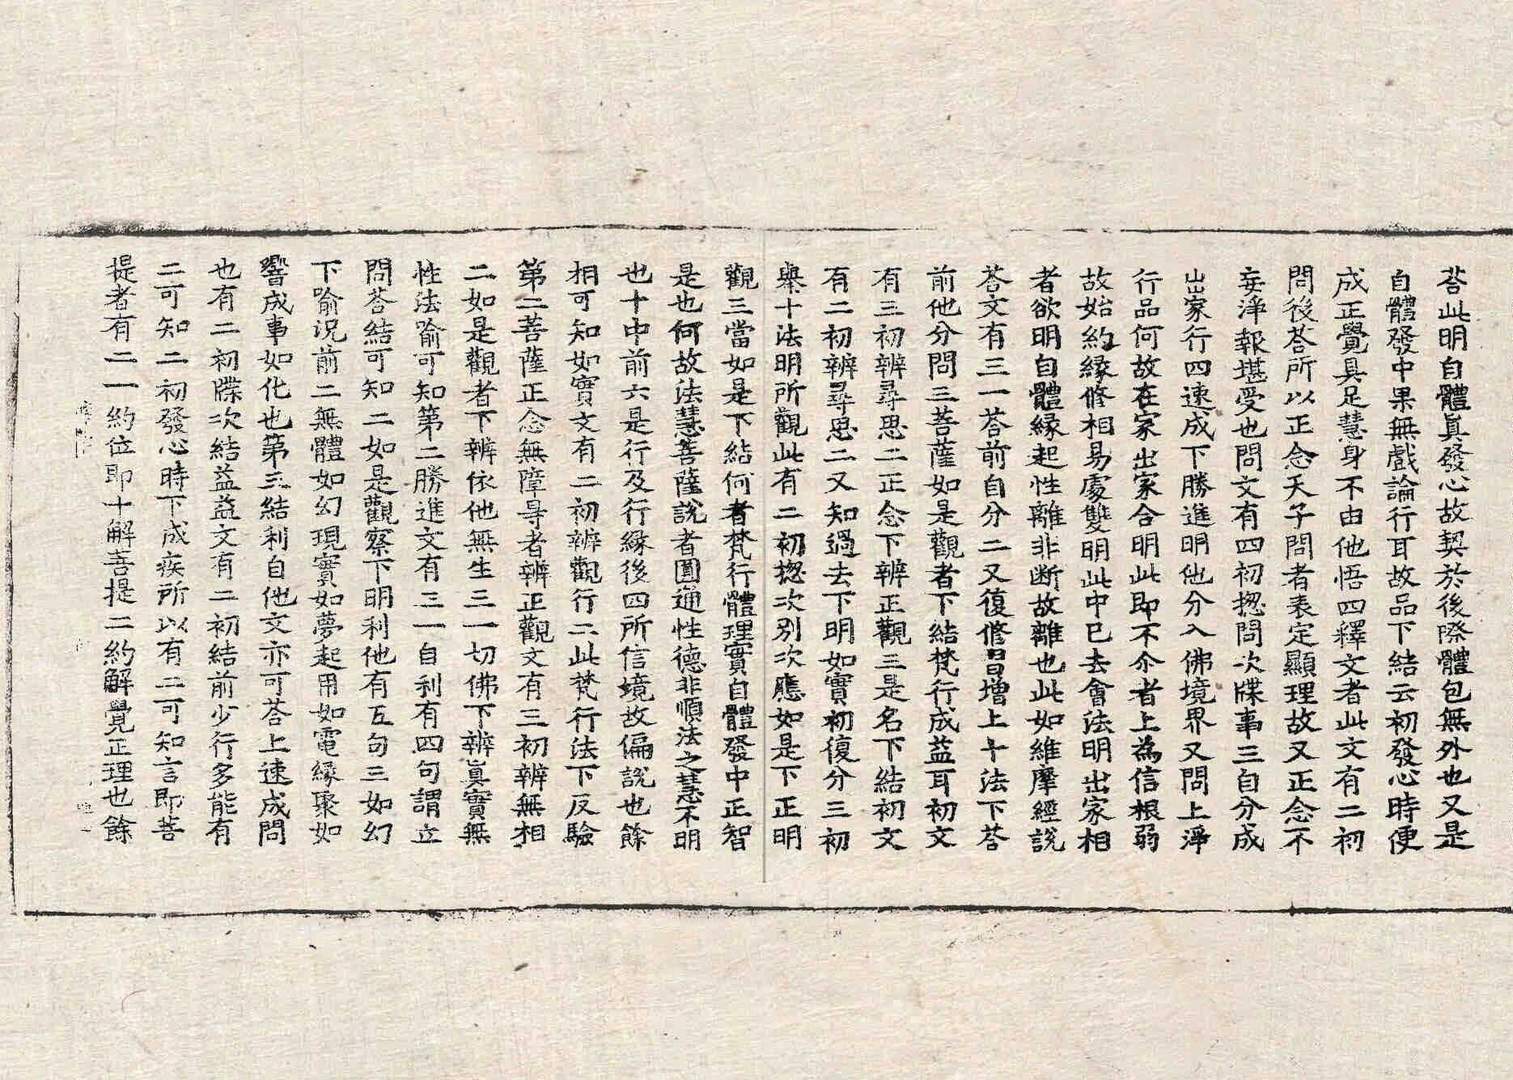 荅此明自體真發心故契於後際體包無外也又是
自體發中果無戲論行耳故品下結云初發心時便
成正覺具足慧身不由他悟四釋文者此文有二初
問後荅所以正念天子問者表定顯理故又正念不
妄淨報堪受也問文有四初揔問次牒事三自分成
出家行四速成下勝進明他分入佛境界又問上淨
行品何故在家出家合明此即不尒者上為信根弱
故始約緣修相易處雙明此中已去會法明出家相
者欲明自體緣起性離非断故離也此如維摩經說
荅文有三一荅前自分二又復修習增上十法下荅
前他分問三菩薩如是觀者下結梵行成益耳初文
有三初辨尋思二正念下辨正觀三是名下結初文
有二初辨尋思二又知過去下明如實初復分三初
舉十法明所觀此有二初揔次別次應如是下正明
觀三當如是下結何者梵行體理實自體發中正智
是也何故法慧菩薩說者圓通性德非順法之慧不明
也十中前六是行及行緣後四所信境故偏說也餘
相可知如實文有二初辨觀行二此梵行法下反驗
第二菩薩正念無障㝵者辨正觀文有三初辨無相
二如是觀者下辨依他無生三一切佛下辨真實無
性法喻可知第二勝進文有三一自利有四句謂立
問荅結可知二如是觀察下明利他有五句三如幻
下喻況前二無體如幻現實如夢起用如電緣聚如
響成事如化也第三結利自他文亦可荅上速成問
也有二初牒次結益益文有二初結前少行多能有
二可知二初發心時下成疾所以有二可知言即菩
提者有二一約位即十解菩提二約解覺正理也餘